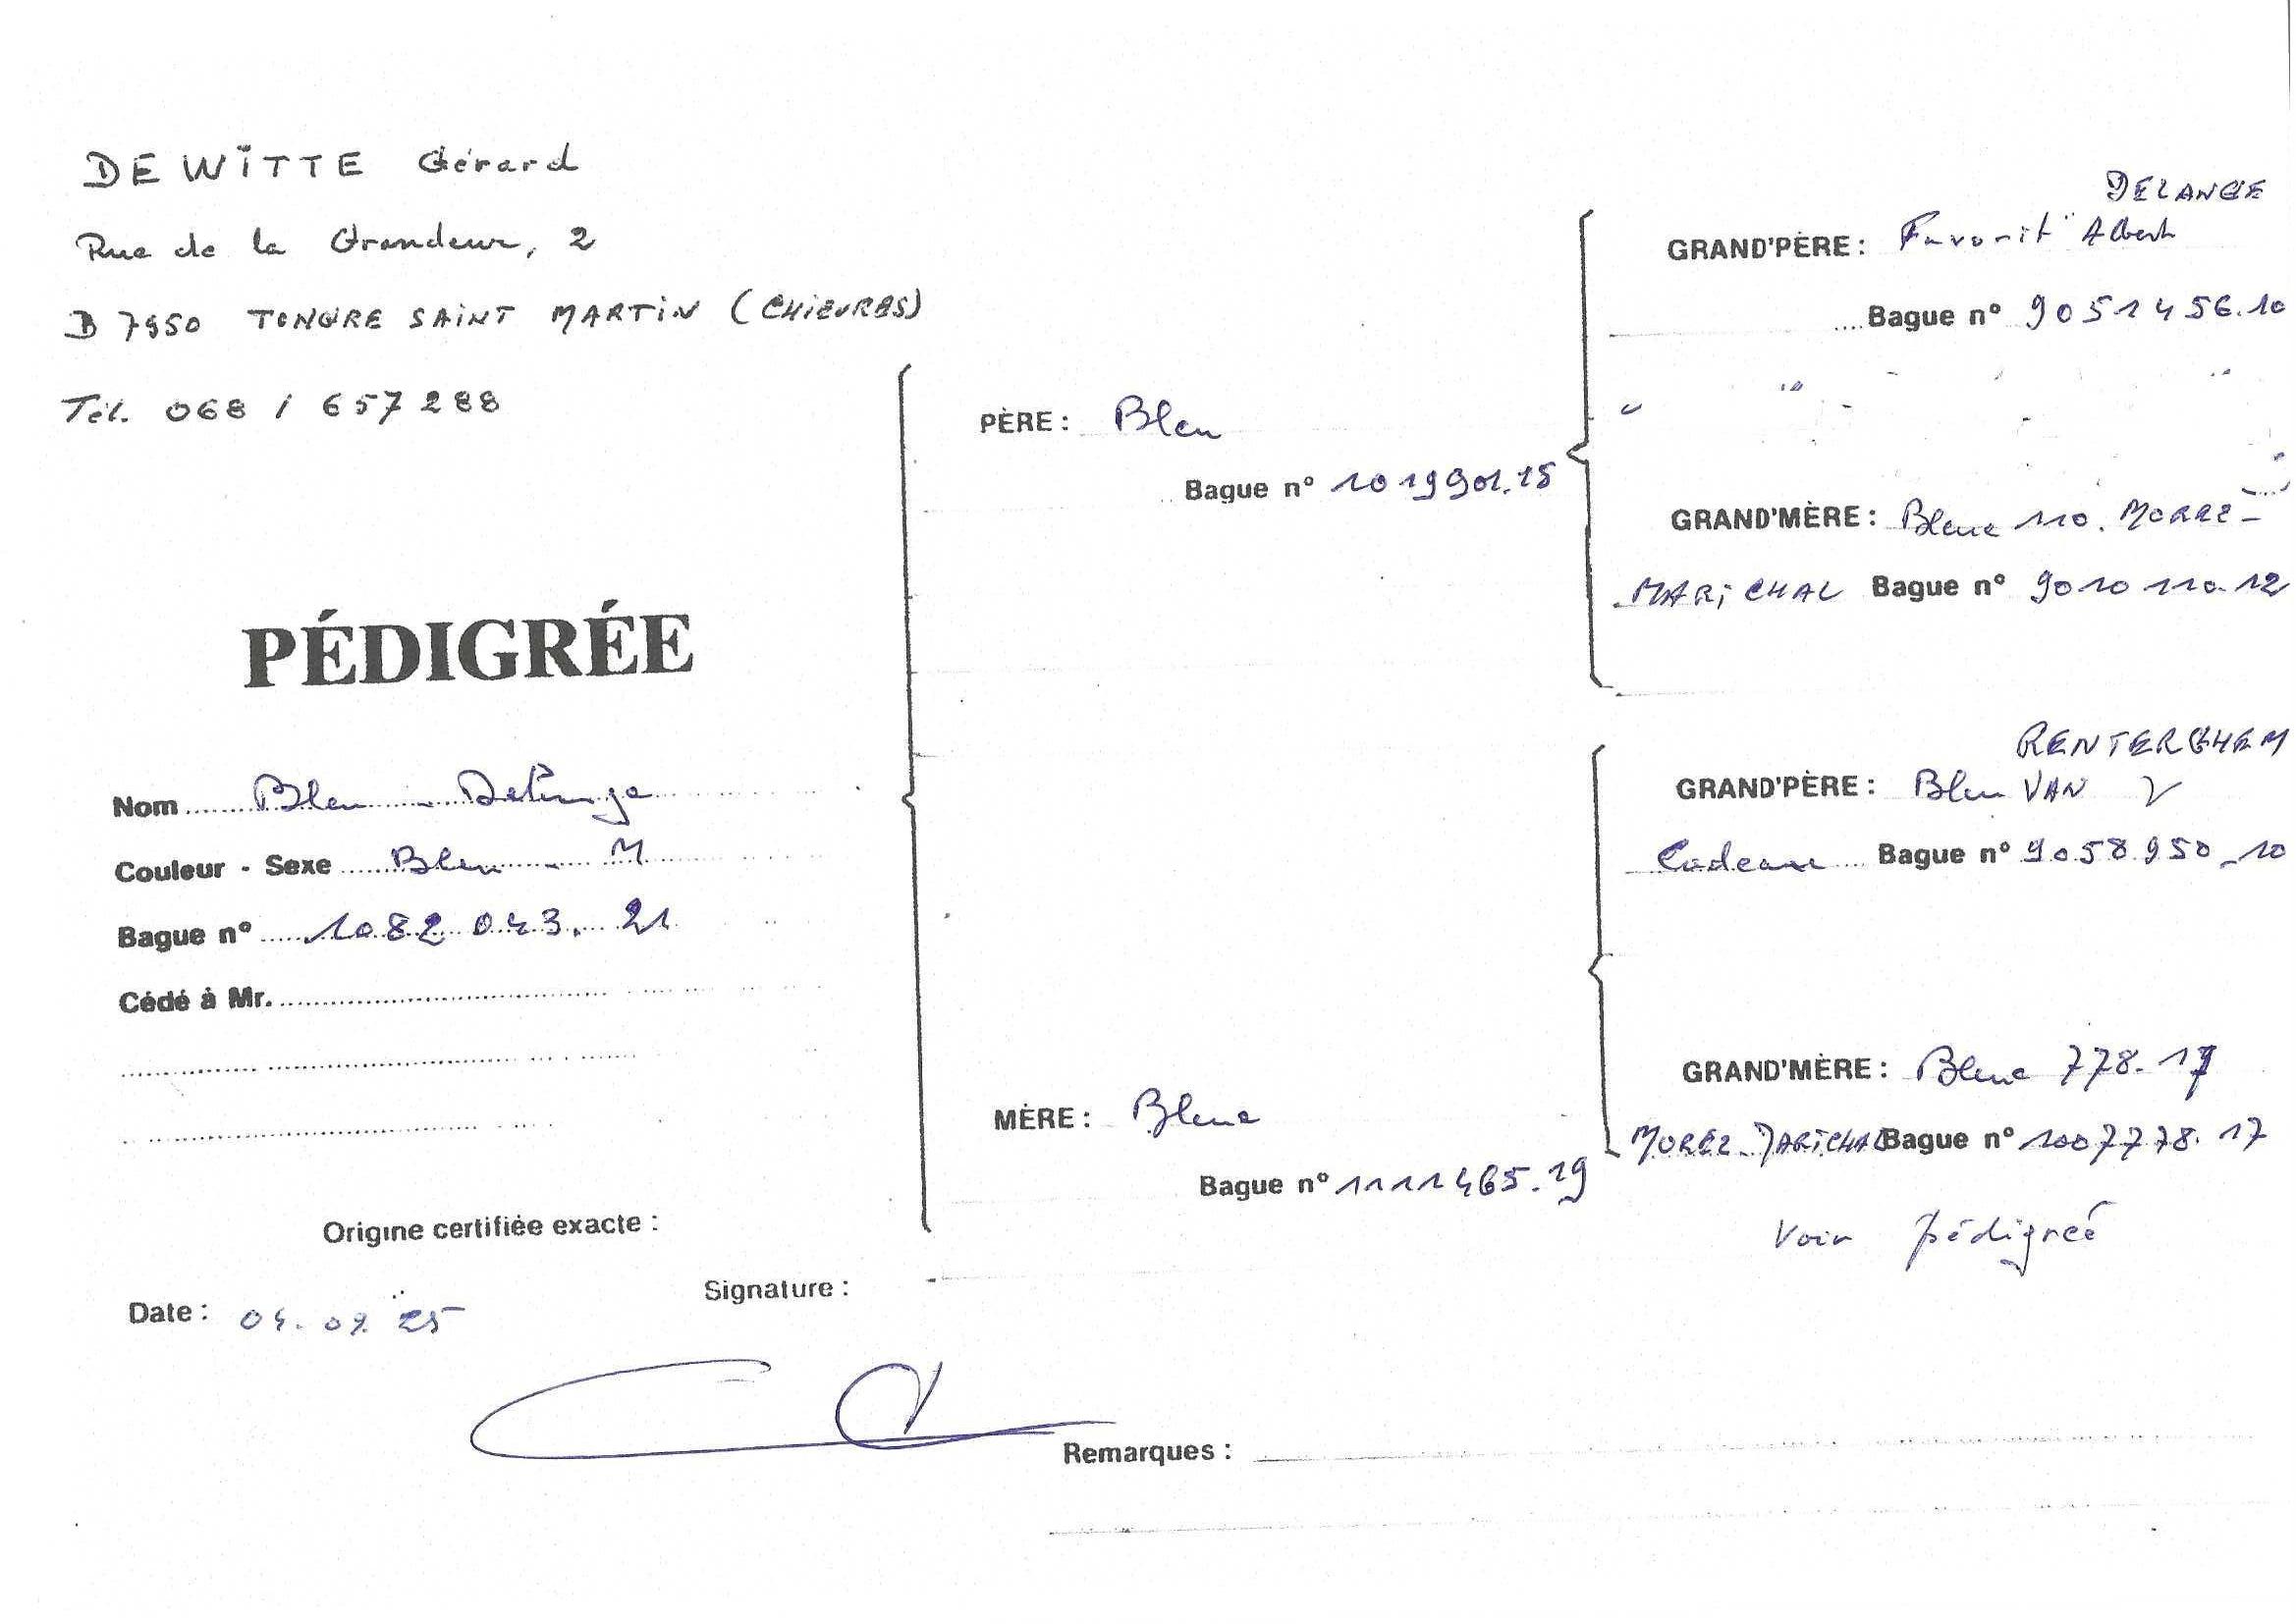 DE WITTE Gérard
Rue de la Grandeur, 2
B 7950 TONGRE SAINT MARTIN (CHIEVRES)
Tél. 068 / 657288
PÉDIGRÉE
Nom Bleu - Delange
Couleur - Sexe Bleu - M
Bague n° 1082 043. 21
Cédé à Mr.
Origine certifiée exacte :
Date : 04. 09. 25
Signature :
PÈRE : Bleu
Bague n° 1019901.15
MÈRE : Bleue
Bague n° 1111465.19
DELANGE
GRAND'PÈRE : Favorit Albert
Bague n° 9051456.10
GRAND'MÈRE : Bleue 110. MOREZ -
MARICHAL Bague n° 9010110.12
RENTERGHEM
GRAND'PÈRE : Bleu VAN
Cadeau Bague n° 9058950-10
GRAND'MÈRE : Bleue 778. 17
MOREZ-MARICHAL Bague n° 1007778. 17
Voir pédigreé
Remarques :